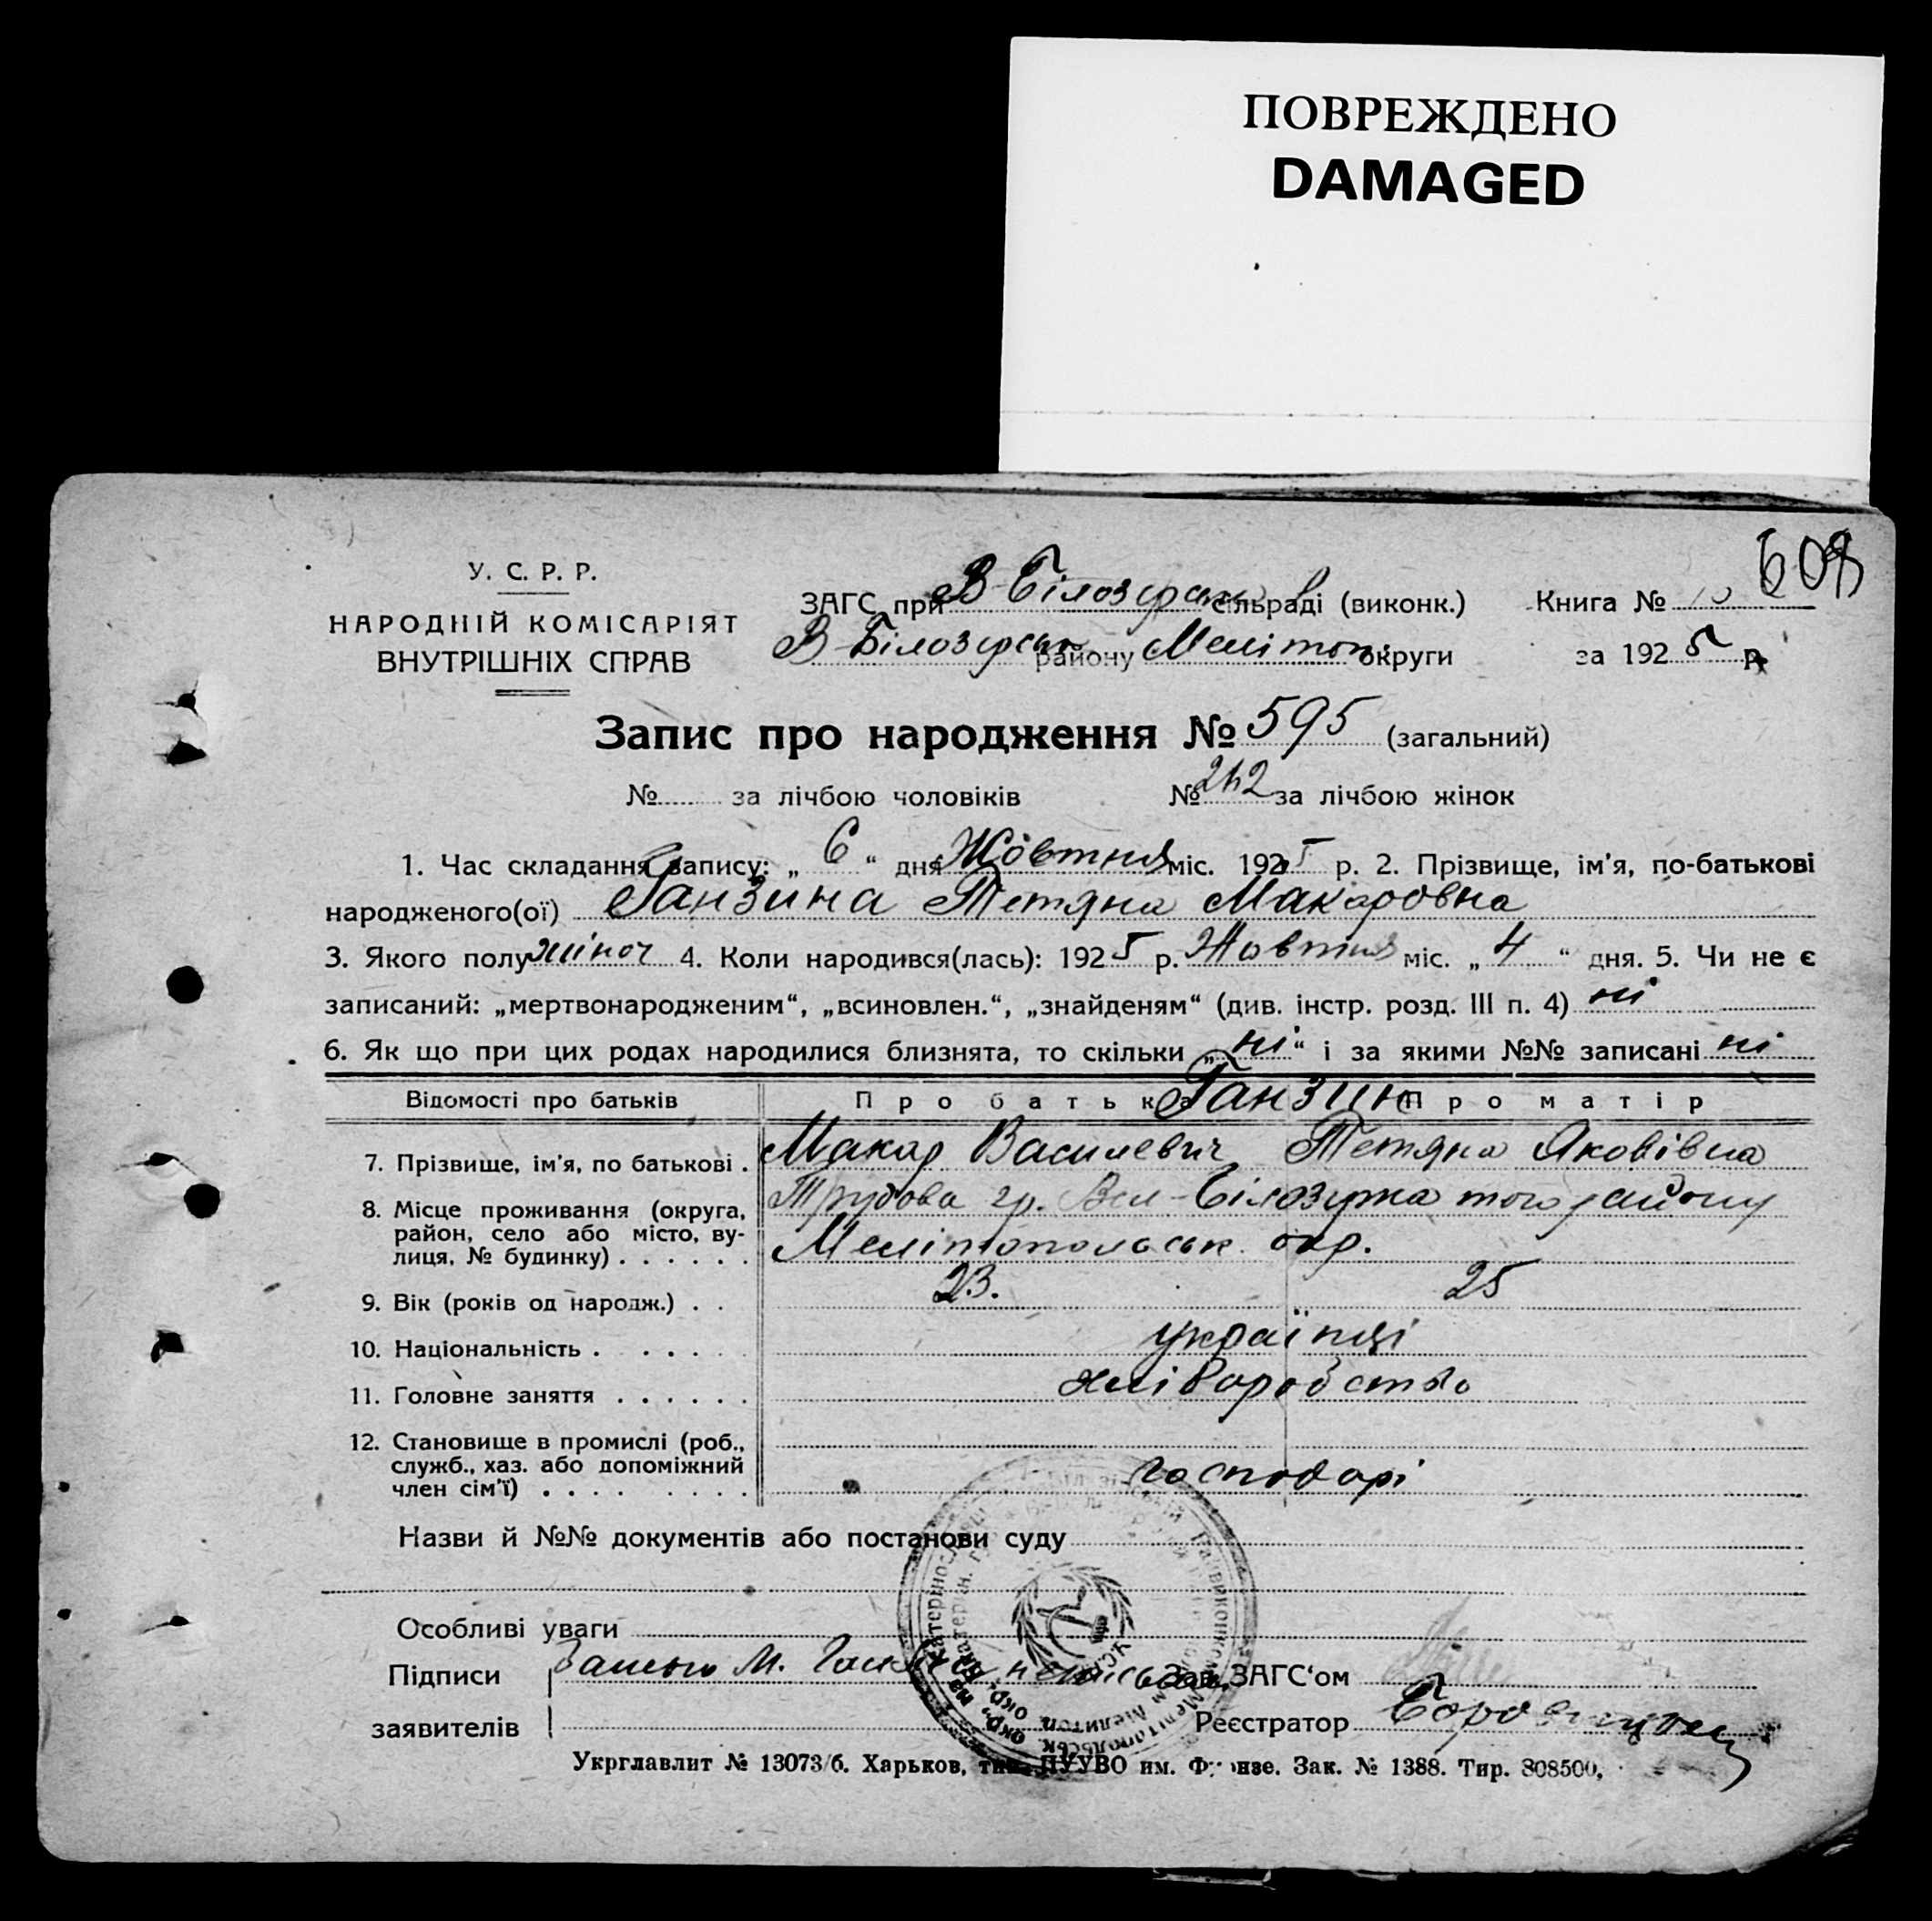 ПОВРЕЖДЕНО
DAMAGED
609
У. С. Р. Р.
НАРОДНІЙ КОМІСАРІЯТ
ВНУТРІШНІХ СПРАВ
ЗАГС при В-Білозерськ сільраді (виконк.) Книга № 10
В-Білозерськ району Мелітоп. округи за 1925 р.
Запис про народження № 595 (загальний)
№ за лічбою чоловіків № 242 за лічбою жінок
1. Час складання запису: „ 6 “ дня Жовтня міс. 1925 р. 2. Прізвище, ім'я, по-батькові
народженого(ої) Ганзина Тетяна Макаровна
3. Якого полу жіноч 4. Коли народився(лась): 1925 р. Жовтня міс. „ 4 “ дня. 5. Чи не є
записаний: „мертвонародженим“, „всиновлен.“, „знайденям“ (див. інстр. розд. III п. 4) ні
6. Як що при цих родах народилися близнята, то скільки „ ні “ і за якими №№ записані ні
Відомості про батьків Про батька Ганзин Про матір
7. Прізвище, ім'я, по батькові . Макар Василевич Тетяна Яковівна
8. Місце проживання (округа, Трудова гр. Вел-Білозерка того району
район, село або місто, ву-
лиця, № будинку) . . . . . . Мелітопольськ. окр.
9. Вік (років од народж.) . . 23. 25
10. Національність . . . . . . українці
11. Головне заняття . . . . . . хліборобство
12. Становище в промислі (роб.,
служб., хаз. або допоміжний
член сім'ї) . . . . . . . . . господарі
Назви й №№ документів або постанови суду
Особливі уваги
Підписи М. Зав. ЗАГС‘ом
заявителів Реєстратор
Укрглавлит № 13073/б. Харьков, тип. ПУУВО им. Фрунзе. Зак. № 1388. Тир. 808500,